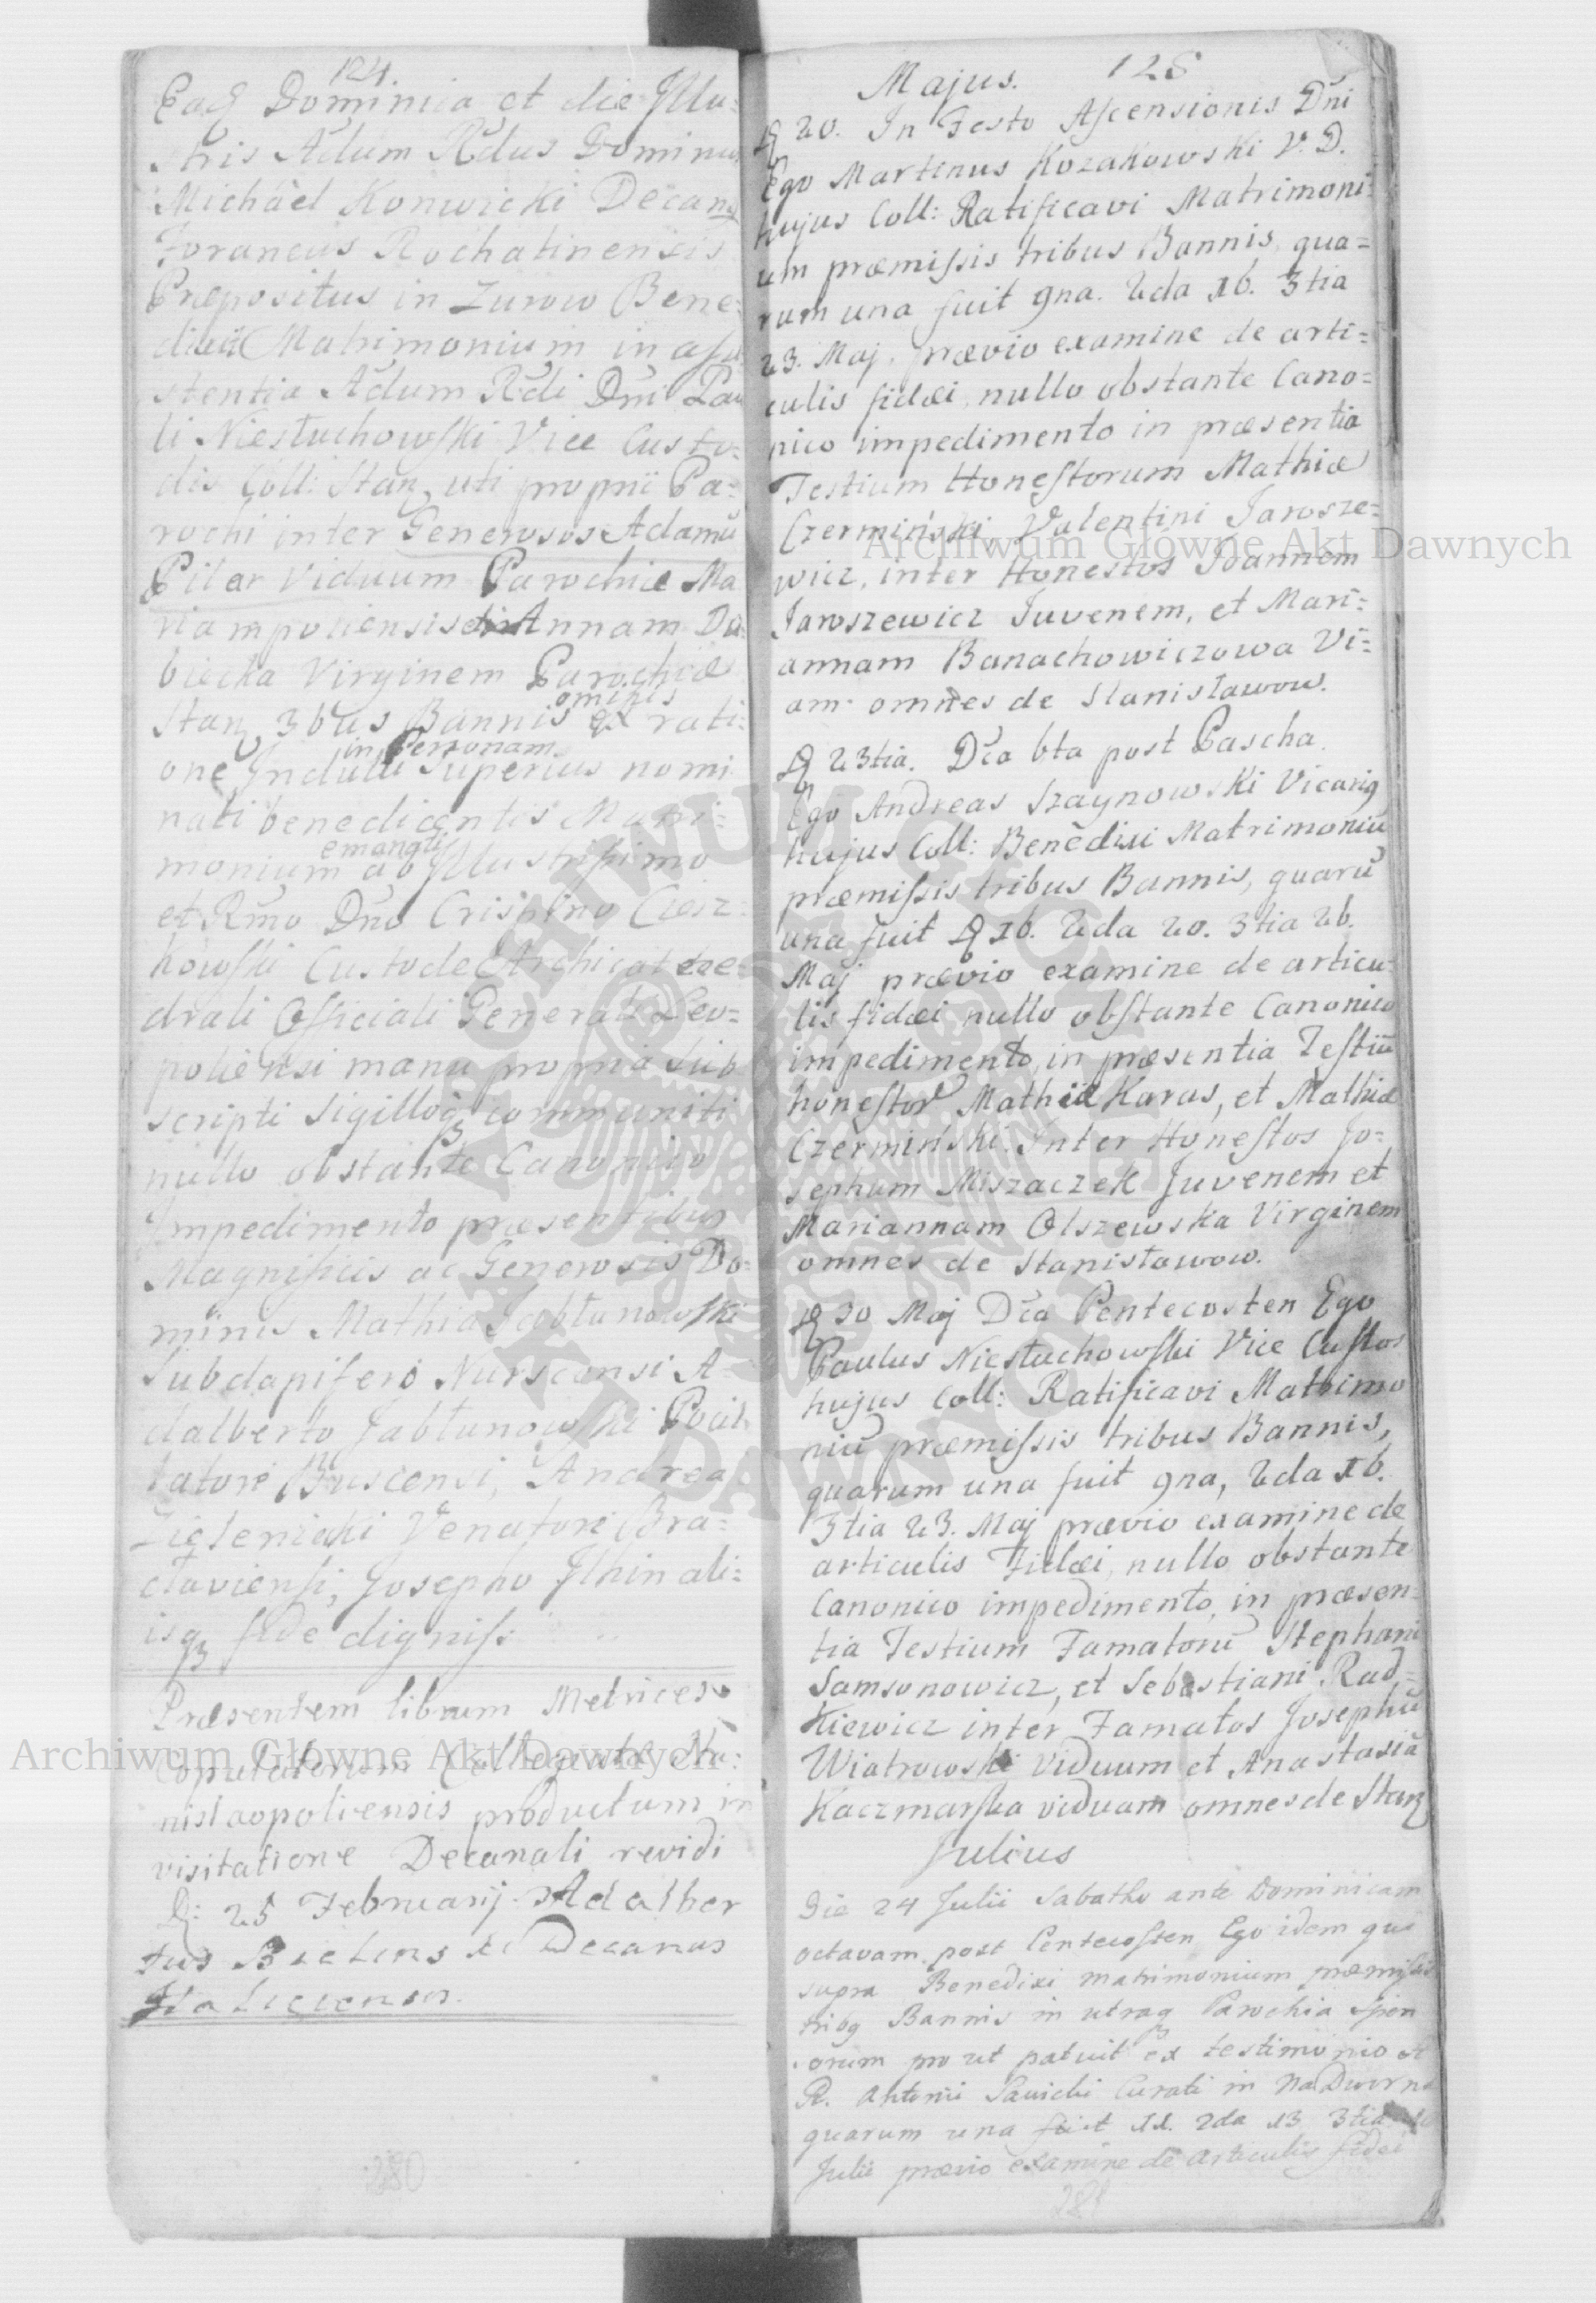 124.
Eadem Dominica et die Illu=
stris Adum Rdus Dominus
Michäel Konwicki Decanus
Foraneus Rochatinensis
Præpositus in Zurow Bene=
dixit Matrimonium in assi=
stentia Adum Rdi Dni Pau
li Niestuchowski Vice Custo=
dis Coll: Stan, uti proprii Pa=
rochi inter Generosos Adamũ
Pilar Viduum Parochiæ Ma
riampoliensis et Annam Du
biecka Virginem Parochiæ
Stan 3bus Bannis omissis ex rati=
one Indulti in Personam Superius nomi
nati benedicentis Matri=
monium emanati ab Illustrissimo
et Rmo Dno Crispino Ciesz=
kowski Custode Archicathe=
drali Officiali Generali Leo=
poliensi manu propria sub
scripti Sigilloq communiti
nullo obstante Canonico
Impedimento præsentibus
Magnificis ac Generosis Do=
minis Mathia Jabłunowski
Subdapifero Nurscensi A=
dalberto Jabłunowski Pocil
latore Buscensi, Andrea
Zieleniecki Venatore Bra=
claviensi, Josepho Ilhin ali=
isq fide digniss:
Præsentem librum Metrices
Copulatorum Collegiatæ Sta=
nislaopoliensis productum in
visitatione Decanali revidi
D: 25 Februarij Adalber
tus Bielens Decanus
Haliciensis.
280
Majus. 125
D 20. In Festo Ascensionis Dni
Ego Martinus Kozakowski V. D.
hujus Coll: Ratificavi Matrimoni=
um præmissis tribus Bannis, qua=
rum una fuit 9na. 2da 16. 3tia
23. Maj. prævio examine de arti=
culis fidæi, nullo obstante Cano=
nico impedimento in præsentia
Testium Honestorum Mathiæ
Czermiński, Valentini Jarosze=
wicz, inter Honestos Joannem
Jaroszewicz Juvenem, et Mari=
annam Banachowiczowa Vi=
am. omnes de Stanisławow.
D 23tia. Dca 6ta post Pascha.
Ego Andreas Szaynowski Vicariq
hujus Coll: Benedixi Matrimoniũ
præmissis tribus Bannis, quarũ
una fuit D 16. 2da 20. 3tia 26.
Maj prævio examine de articu=
lis fidæi nullo obstante Canonico
impedimento, in præsentia Testiũ
honestor Mathiæ Karas, et Mathiæ
Czermiński. Inter Honestos Jo=
sephum Miszaczek Juvenem et
Mariannam Olszewska Virginem
omnes de Stanisławow.
D 30 Maj Dca Pentecosten Ego
Paulus Niestuchowski Vice Custos
hujus Coll: Ratificavi Matrimo
niũ præmissis tribus Bannis,
quarum una fuit 9na, 2da 16.
3tia 23. Maj prævio examine de
articulis Fidæi, nullo obstante
Canonico impedimento, in præsen=
tia Testium Famatorũ Stephani
Samsonowicz, et Sebastiani Rad=
kiewicz inter Famatos Josephũ
Wiatrowski Viduum et Anastasiã
Kaczmarska viduam omnes de Stan
Julius
Die 24 Julii Sabatho ante Dominicam
octavam post Pentecosten Ego idem qui
supra Benedixi matrimonium præmissis
tribq Bannis in utraq Parochia Spon
sorum pro ut patuit ex testimonio A
R. Antonii Sawicki Curati in Nadworna
quarum una fuit 11. 2da 13 3tia
Julii prævio examine de articulis fidei
281
Archiwum Główne Akt Dawnych
Archiwum Główne Akt Dawnych
ARCHIWUM GŁÓWNE AKT DAWNYCH